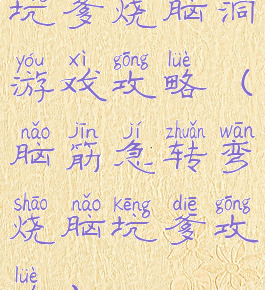 坑爹烧脑洞
yóu xì gōng lüè
游戏攻略（
nǎo jīn jí zhuǎn wān
脑筋急转弯
shāo nǎo kēng diē gōng
烧脑坑爹攻
lüè